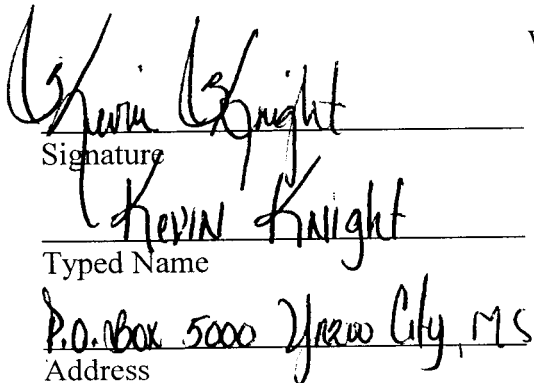 Kevin Knight
Signature
Kevin Knight
Typed Name
P.O. Box 5000 Yazoo City, MS
Address